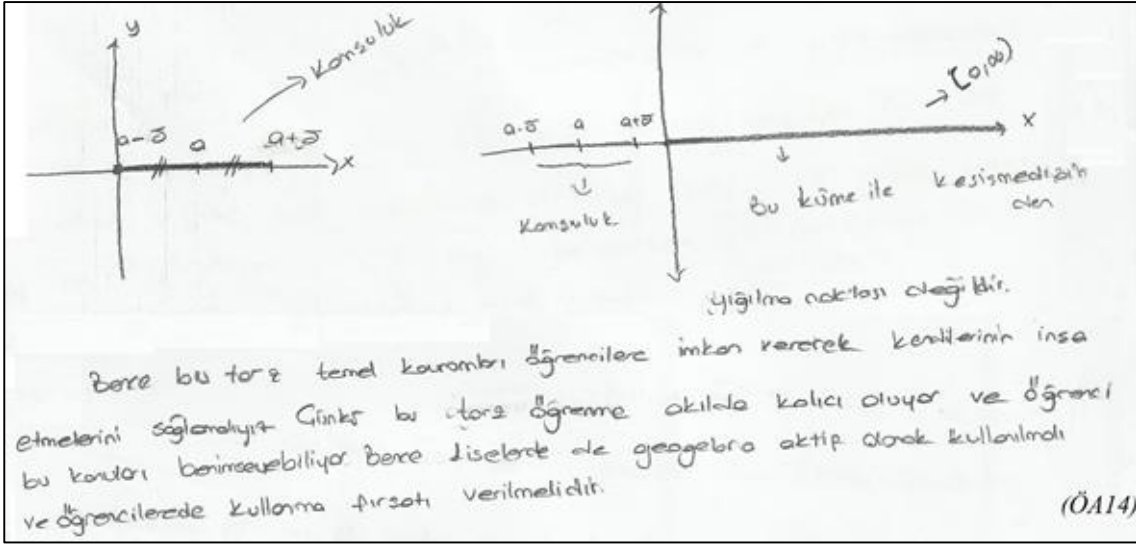 y
Komşuluk
a-δ a a+δ x
[0,∞)
a-δ a a+δ x
Komşuluk
Bu küme ile kesişmediğin
den
yığılma noktası değildir.
Bence bu tarz temel kavramları öğrencilere imkan vererek kendilerinin inşa
etmelerini sağlamalıyız Çünkü bu tarz öğrenme akılda kalıcı oluyor ve öğrenci
bu konuları benimseyebiliyor. Bence liselerde de geogebra aktif olarak kullanılmalı
ve öğrencilerede kullanma fırsatı verilmelidir.
(ÖA14)